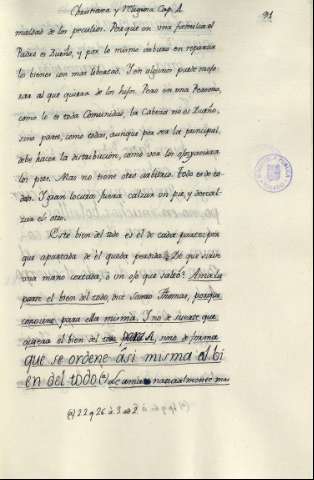 Christiana y Magina Cap. A.
91
maldad de los peculios. Porque en una familia el
Padre es Dueño, y por lo mismo debiera en repartir
los bienes con mas libertad. Y en algunos puede mejo-
rar al que quiera de los hijos. Pero en una Persona,
como lo es toda Comunidad, la Cabeza no es Dueño,
sino parte, como todas, aunque por ser la principal,
debe hacer la distribucion, como ven los ojos, y miran
los pies. Mas no tiene otro arbitrio. Todo es de to-
do. Y gran locura fuera calzar un pie, y descal-
zar el otro.
Este bien del todo es el de cada parte; por
que apartada de él queda perdida. De qué sirve
una mano cortada, o un ojo que saltó? Ama la
parte el bien del todo, dice Santo Thomas, porque
conviene para ella misma. Y no de suerte que
quiera el bien del todo para sí, sino de forma
que se ordene ási misma al bi
en del todo (a) La amistad natural mas
(a) 22 q 26 a 3 ad 2